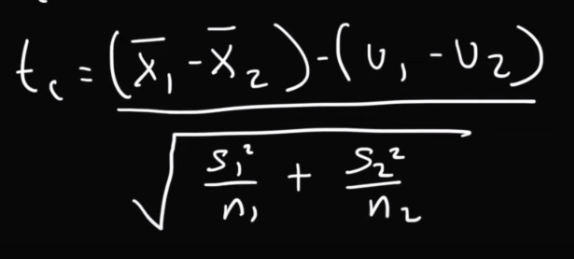 t_c = (x̄₁ - x̄₂) - (υ₁ - υ₂)
√ s₁²/n₁ + s₂²/n₂